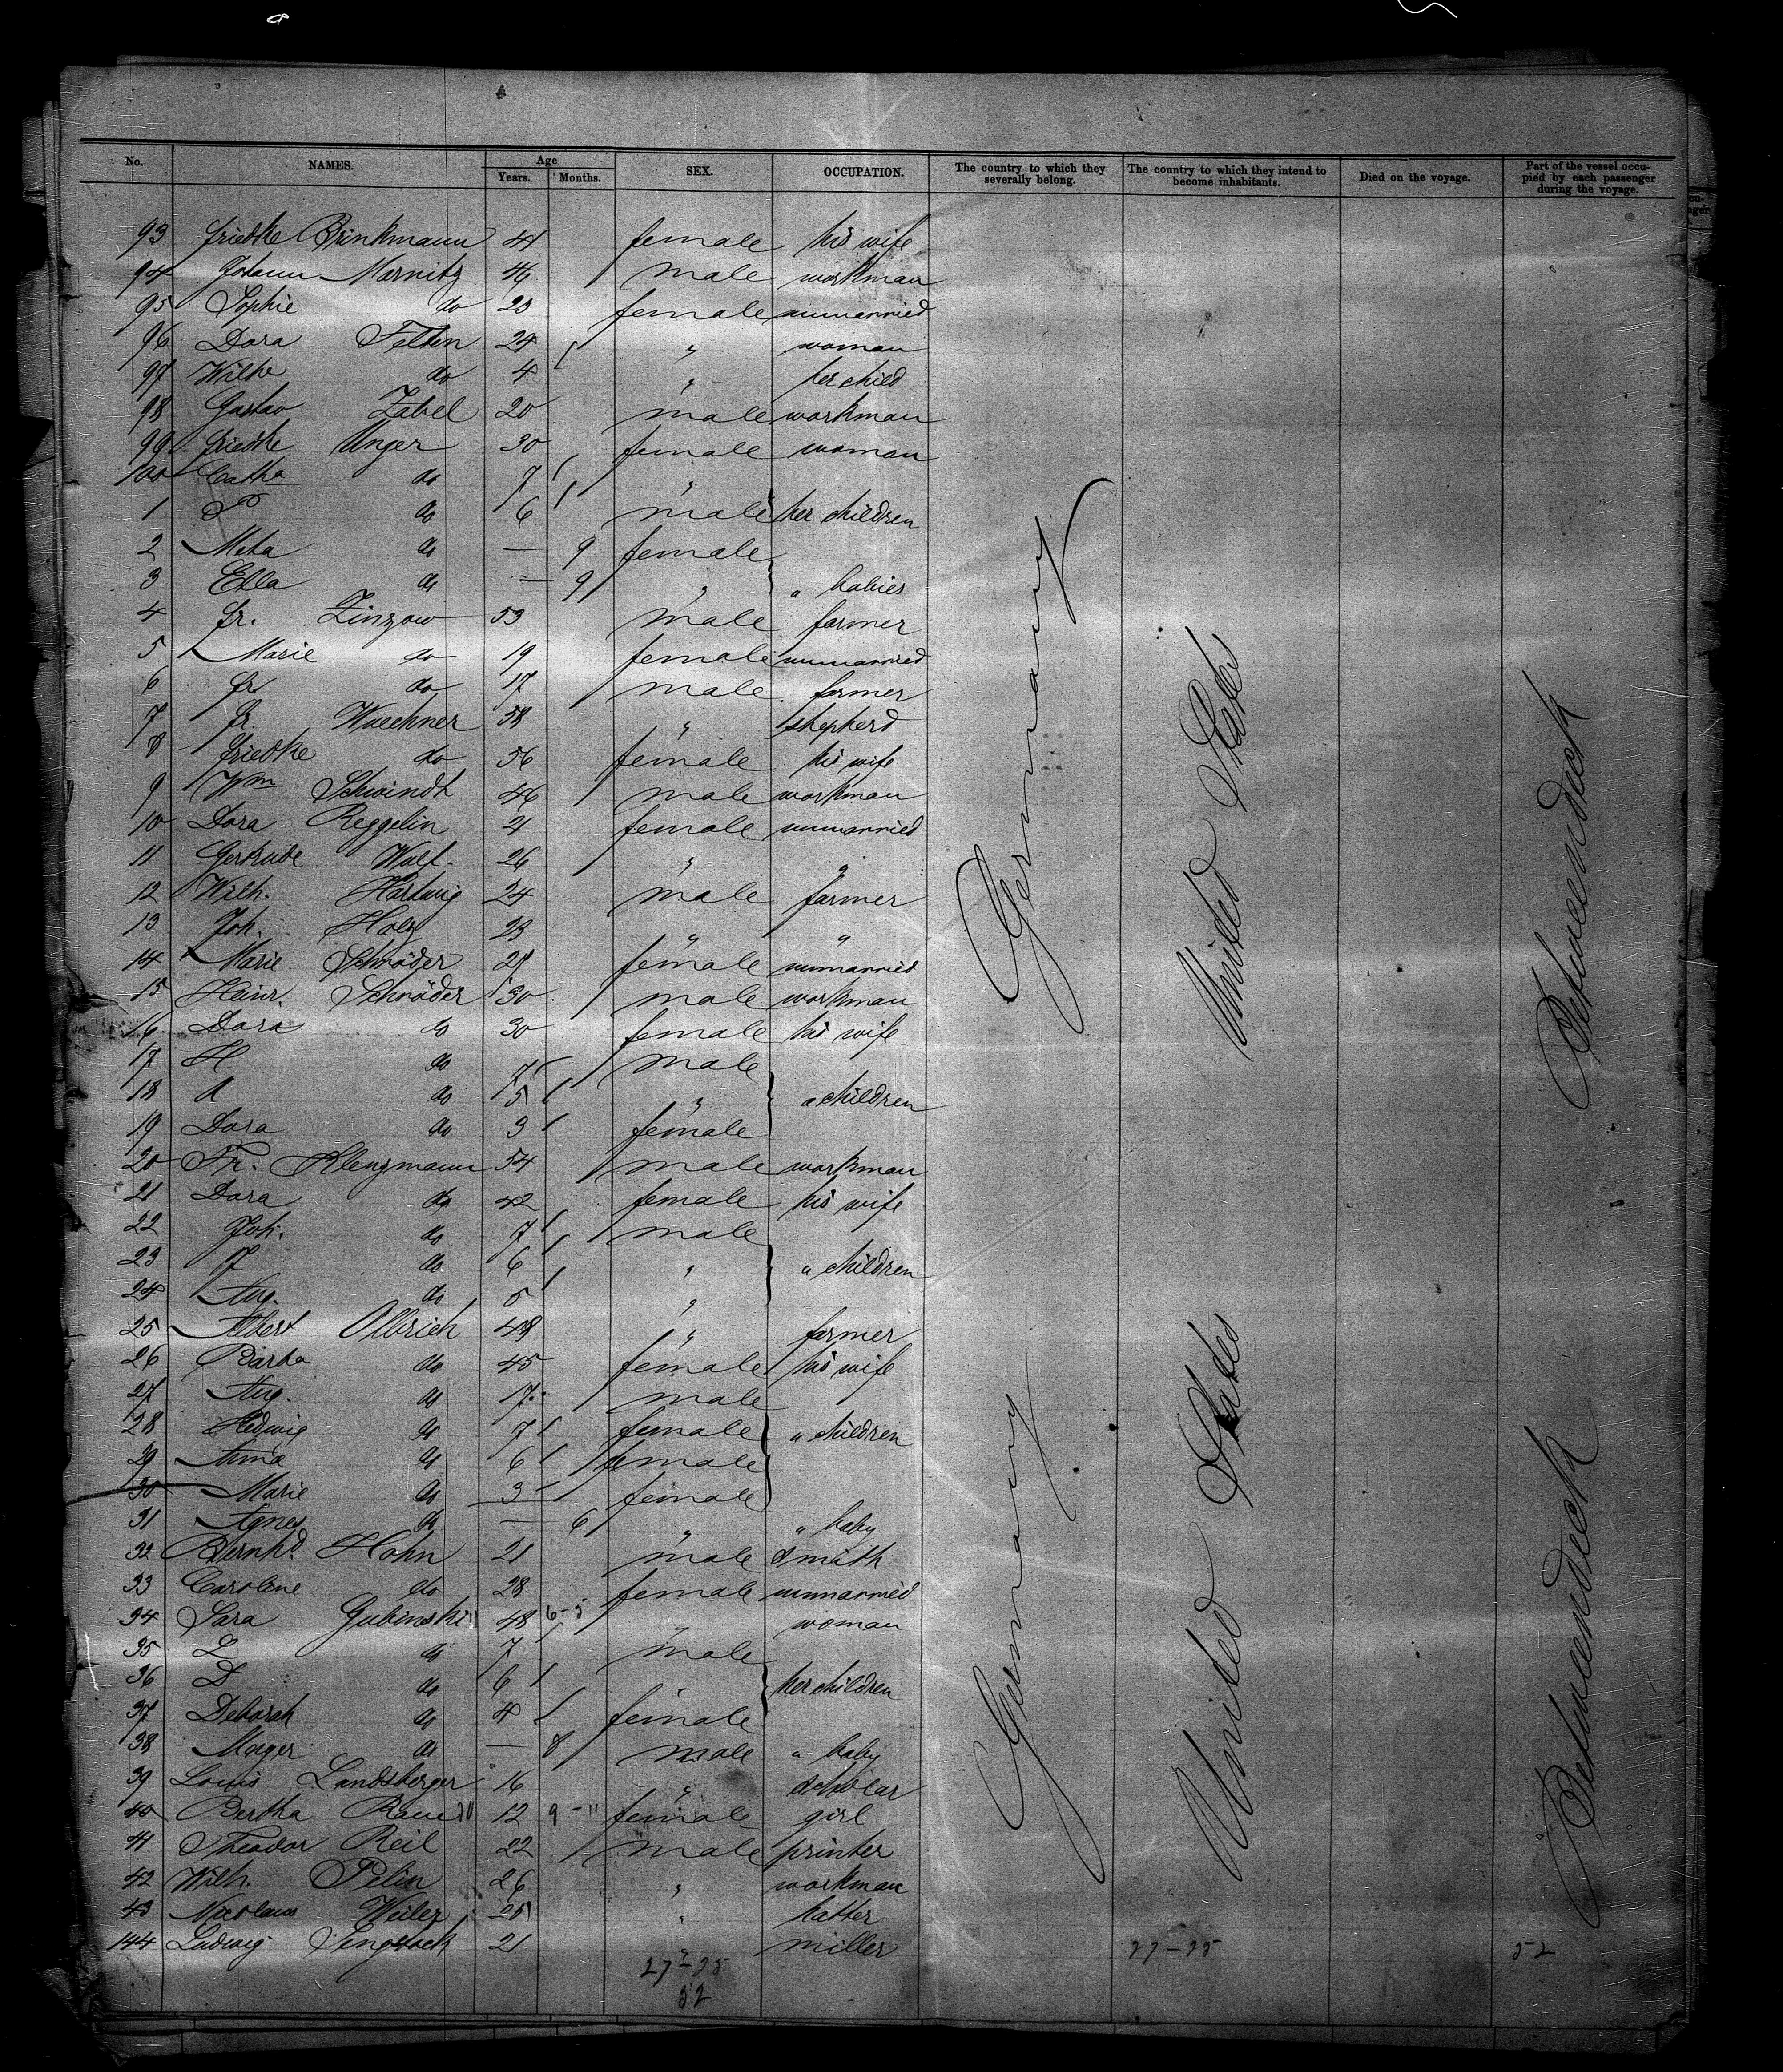 No. NAMES. Age Years. Months. SEX. OCCUPATION. The country to which they severally belong. The country to which they intend to become inhabitants. Died on the voyage. Part of the vessel occupied by each passenger during the voyage.
93 Friedke Brinkmann 41 female his wife
94 Johann Marnitz 46 male workman
95 Sophie do 23 female unmarried
96 Dora Felten 24 " woman
97 Wilhe do 4 " her child
98 Gustav Zabel 20 male workman
99 Friedke Unger 30 female woman
100 Catha do 7 "
1 do 6 male her children
2 Meta do — 9 female
3 Ella do — 9 " " babies
4 Fr. Zinzow 53 male farmer
5 Marie do 19 female unmarried
6 Fr do 17 male farmer
7 Fr. Waechner 58 " shepherd
8 Friedke do 56 female his wife
9 Wm Schwindt 46 male workman
10 Dora Reggelin 21 female unmarried
11 Gertrude Wolf 26 " "
12 Wilh. Hartwig 24 male farmer
13 Joh. Holz 23 " "
14 Marie Schröder 21 female unmarried
15 Heinr. Schröder 30 male workman
16 Dora do 30 female his wife
17 H do 7 male
18 A do 5 " " children
19 Dora do 3 female
20 Fr. Klenzmann 54 male workman
21 Dora do 42 female his wife
22 Joh. do 7 male
23 F do 6 " " children
24 Aug. do 5 "
25 Albert Olbrich 48 " farmer
26 Barba do 45 female his wife
27 Aug. do 17 male
28 Hedwig do 7 female " children
29 Anna do 6 female
30 Marie do 3 female
31 Agnes do — 6 " " baby
32 Bernhd. Hohn 21 male smith
33 Caroline do 28 female unmarried
34 Sara Gubinski 48 6-5 " woman
35 L do 7 male
36 D do 6 " her children
37 Deborah do 4 female
38 Mayer do — 8 male " baby
39 Louis Landsberger 16 " scholar
40 Bertha 12 9-11 female girl
41 Theodor Reil 22 male printer
42 Wilh. Pelin 26 " workman
43 Nicolaus Weiler 25 " hatter
144 Ludwig Sengstock 21 " miller
Germany United States
Germany United States
27-25 27-25 52
52